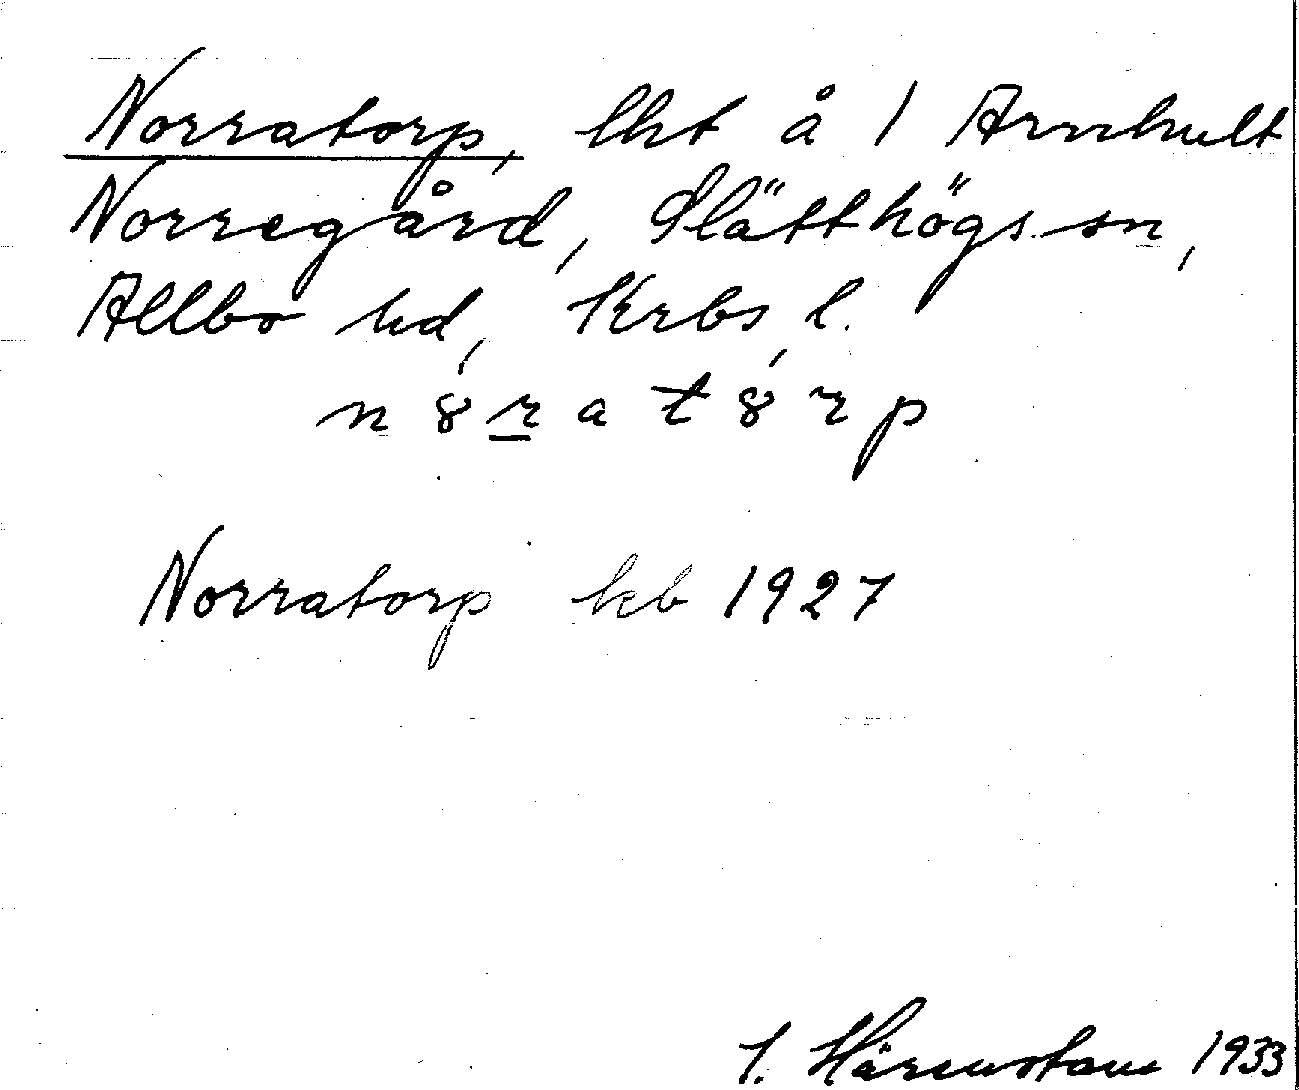 Norratorp, lht å 1 Arnhult
Norregård, Slätthögs sn,
Allbo hd, Krbs l.
n ȣ́ r a t ȣ́ r p
Norratorp kb 1927
1933